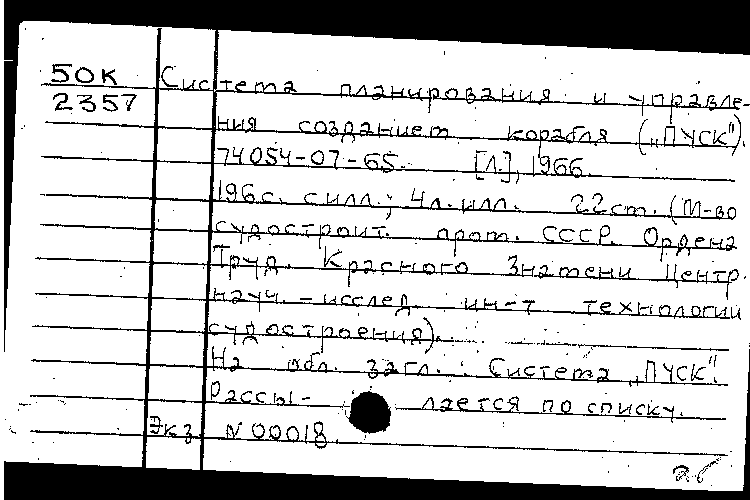 50К Система планирования и управле-
2357 ния созданием корабля („ПУСК").
74054-07-65. [Л.], 1966.
196с. с илл.; 4л. илл. 22см. (М-во
судостроит. пром. СССР. Ордена
Труд. Красного Знамени Центр.
науч.-исслед. ин-т технологии
судостроения).
На обл. загл.: Система „ПУСК".
Рассы- лается по списку.
Экз. N 00018.